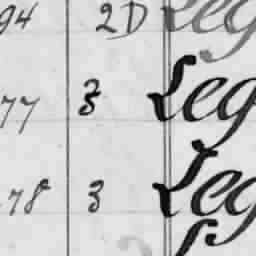 94 2D Leg
77 3 Leg
78 3 Leg